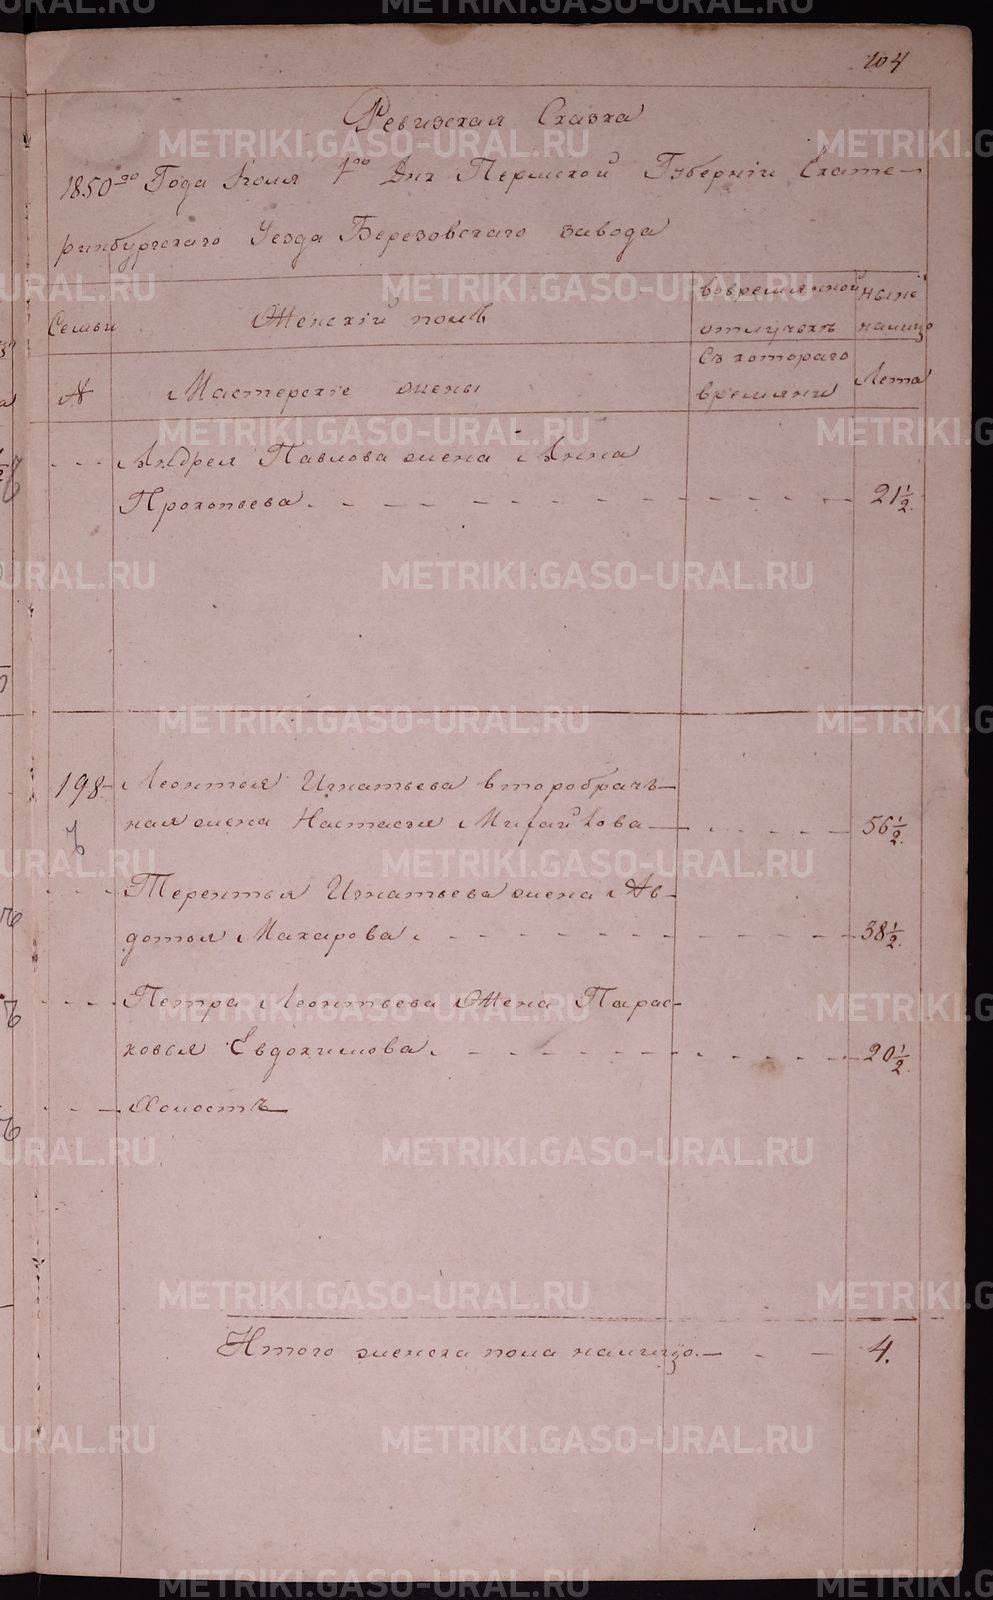 104
Ревизская Сказка
1850го Года Июля 1го Дня Пермской Губернiи Екате-
ринбургского Уезда Березовского завода
Семьи
Женскiй полъ
вовремянной
отлучькъ
ныне
налицо
№
Мастерскiе жены
Съ котораго
времяни
Лета
Андрея Павлова жена Анна
Прокопьева 21 1/2.
198 Леонтья Игнатьева второбрачъ-
ная жена Настасья Михайлова 56 1/2.
Терентья Игнатьева жена Ав-
дотья Макарова 38 1/2.
Петра Леонтьева Жена Парас-
ковья Евдокимова 20 1/2.
Холостъ
Итого женска пола налицо 4.
METRIKI.GASO-URAL.RU